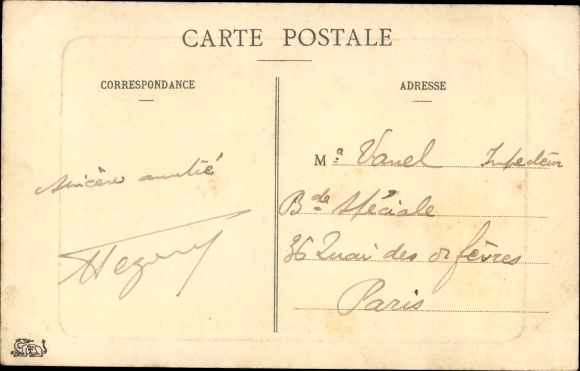 CARTE POSTALE
CORRESPONDANCE
ADRESSE
Sincère amitié
Mʳ Vanel Inspecteur
Bᵈᵉ Spéciale
36 Quai des orfèvres
Paris